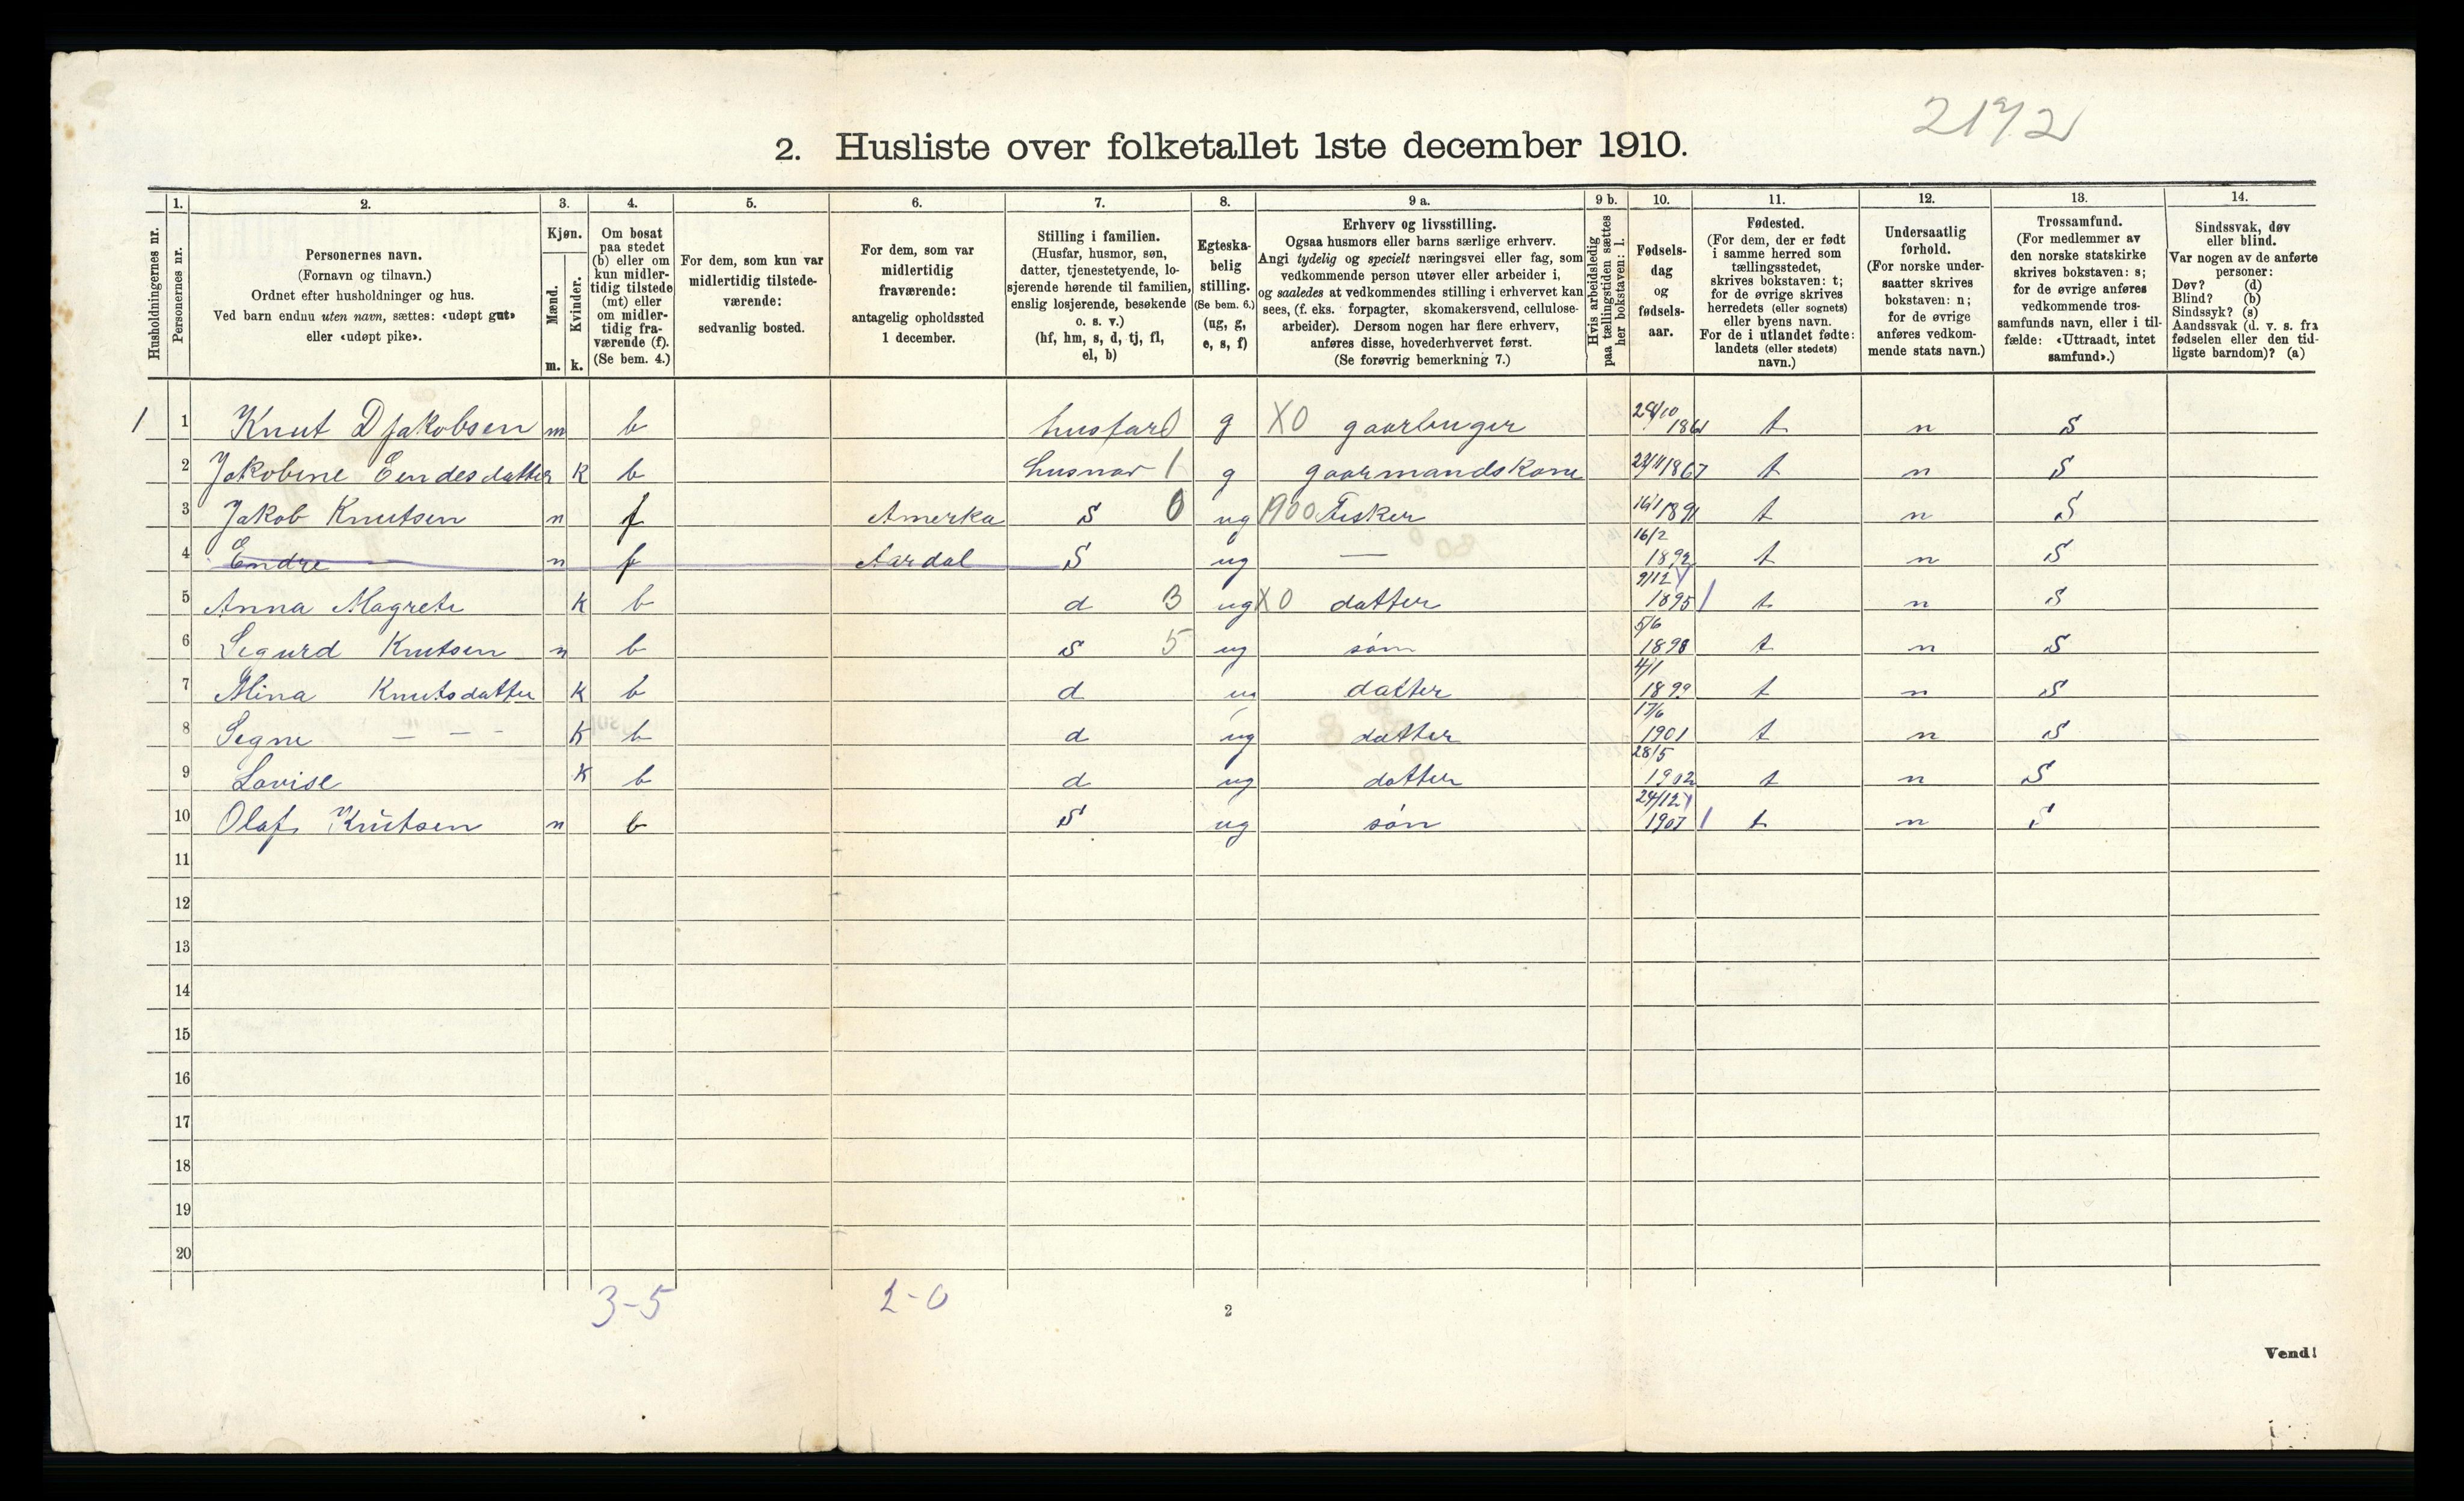 2172
2. Husliste over folketallet 1ste december 1910.
Husholdningernes nr.
1.
Personernes nr.
2.
Personernes navn.
(Fornavn og tilnavn.)
Ordnet efter husholdninger og hus.
Ved barn endnu uten navn, sættes: «udøpt gut»
eller «udøpt pike».
3.
Kjøn.
Mænd.
Kvinder.
m. k.
4.
Om bosat
paa stedet
(b) eller om
kun midler-
tidig tilstede
(mt) eller
om midler-
tidig fra-
værende (f).
(Se bem. 4.)
5.
For dem, som kun var
midlertidig tilstede-
værende:
sedvanlig bosted.
6.
For dem, som var
midlertidig
fraværende:
antagelig opholdssted
1 december.
7.
Stilling i familien.
(Husfar, husmor, søn,
datter, tjenestetyende, lo-
sjerende hørende til familien,
enslig losjerende, besøkende
o. s. v.)
(hf, hm, s, d, tj, fl,
el, b)
8.
Egteska-
belig
stilling.
(Se bem. 6.)
(ug, g,
e, s, f)
9 a.
Erhverv og livsstilling.
Ogsaa husmors eller barns særlige erhverv.
Angi tydelig og specielt næringsvei eller fag, som
vedkommende person utøver eller arbeider i,
og saaledes at vedkommendes stilling i erhvervet kan
sees, (f. eks. forpagter, skomakersvend, cellulose-
arbeider). Dersom nogen har flere erhverv,
anføres disse, hovederhvervet først.
(Se forøvrig bemerkning 7.)
9 b.
Hvis arbeidsledig
paa tællingstiden sættes
her bokstaven: l.
10.
Fødsels-
dag
og
fødsels-
aar.
11.
Fødested.
(For dem, der er født
i samme herred som
tællingsstedet,
skrives bokstaven: t;
for de øvrige skrives
herredets (eller sognets)
eller byens navn.
For de i utlandet fødte:
landets (eller stedets)
navn.)
12.
Undersaatlig
forhold.
(For norske under-
saatter skrives
bokstaven: n;
for de øvrige
anføres vedkom-
mende stats navn.)
13.
Trossamfund.
(For medlemmer av
den norske statskirke
skrives bokstaven: s;
for de øvrige anføres
vedkommende tros-
samfunds navn, eller i til-
fælde: «Uttraadt, intet
samfund».)
14.
Sindssvak, døv
eller blind.
Var nogen av de anførte
personer:
Døv? (d)
Blind? (b)
Sindssyk? (s)
Aandssvak (d. v. s. fra
fødselen eller den tid-
ligste barndom)? (a)
1 1 Knut D Jakobsen m b husfar 0 g X0 gaarbuger 1861 t n s
2 Jakobine Eendesdatter k b husmor 1 g gaarmandskone 1867 t n s
3 Jakob Knutsen n f Amerka s 0 ug 1900 Fisker 16/1 1891 t n s
4 Endre n f Aardal s ug — 16/2 1892 t n s
5 Anna Magrete k b d 3 ug X0 datter 9/12 1895 t n s
6 Segurd Knutsen n b s 5 ug søm 5/6 1898 t n s
7 Mina Knutsdatter k b d ug datter 4/1 1899 t n s
8 Segne — — - k b d ug datter 17/6 1901 t n s
9 Lovise k b d ug datter 28/5 1902 t n s
10 Olaf Knutsen n b s ug søn 24/12 1907 t n s
11
12
13
14
15
16
17
18
19
20
3-5 2-0
2
Vend!